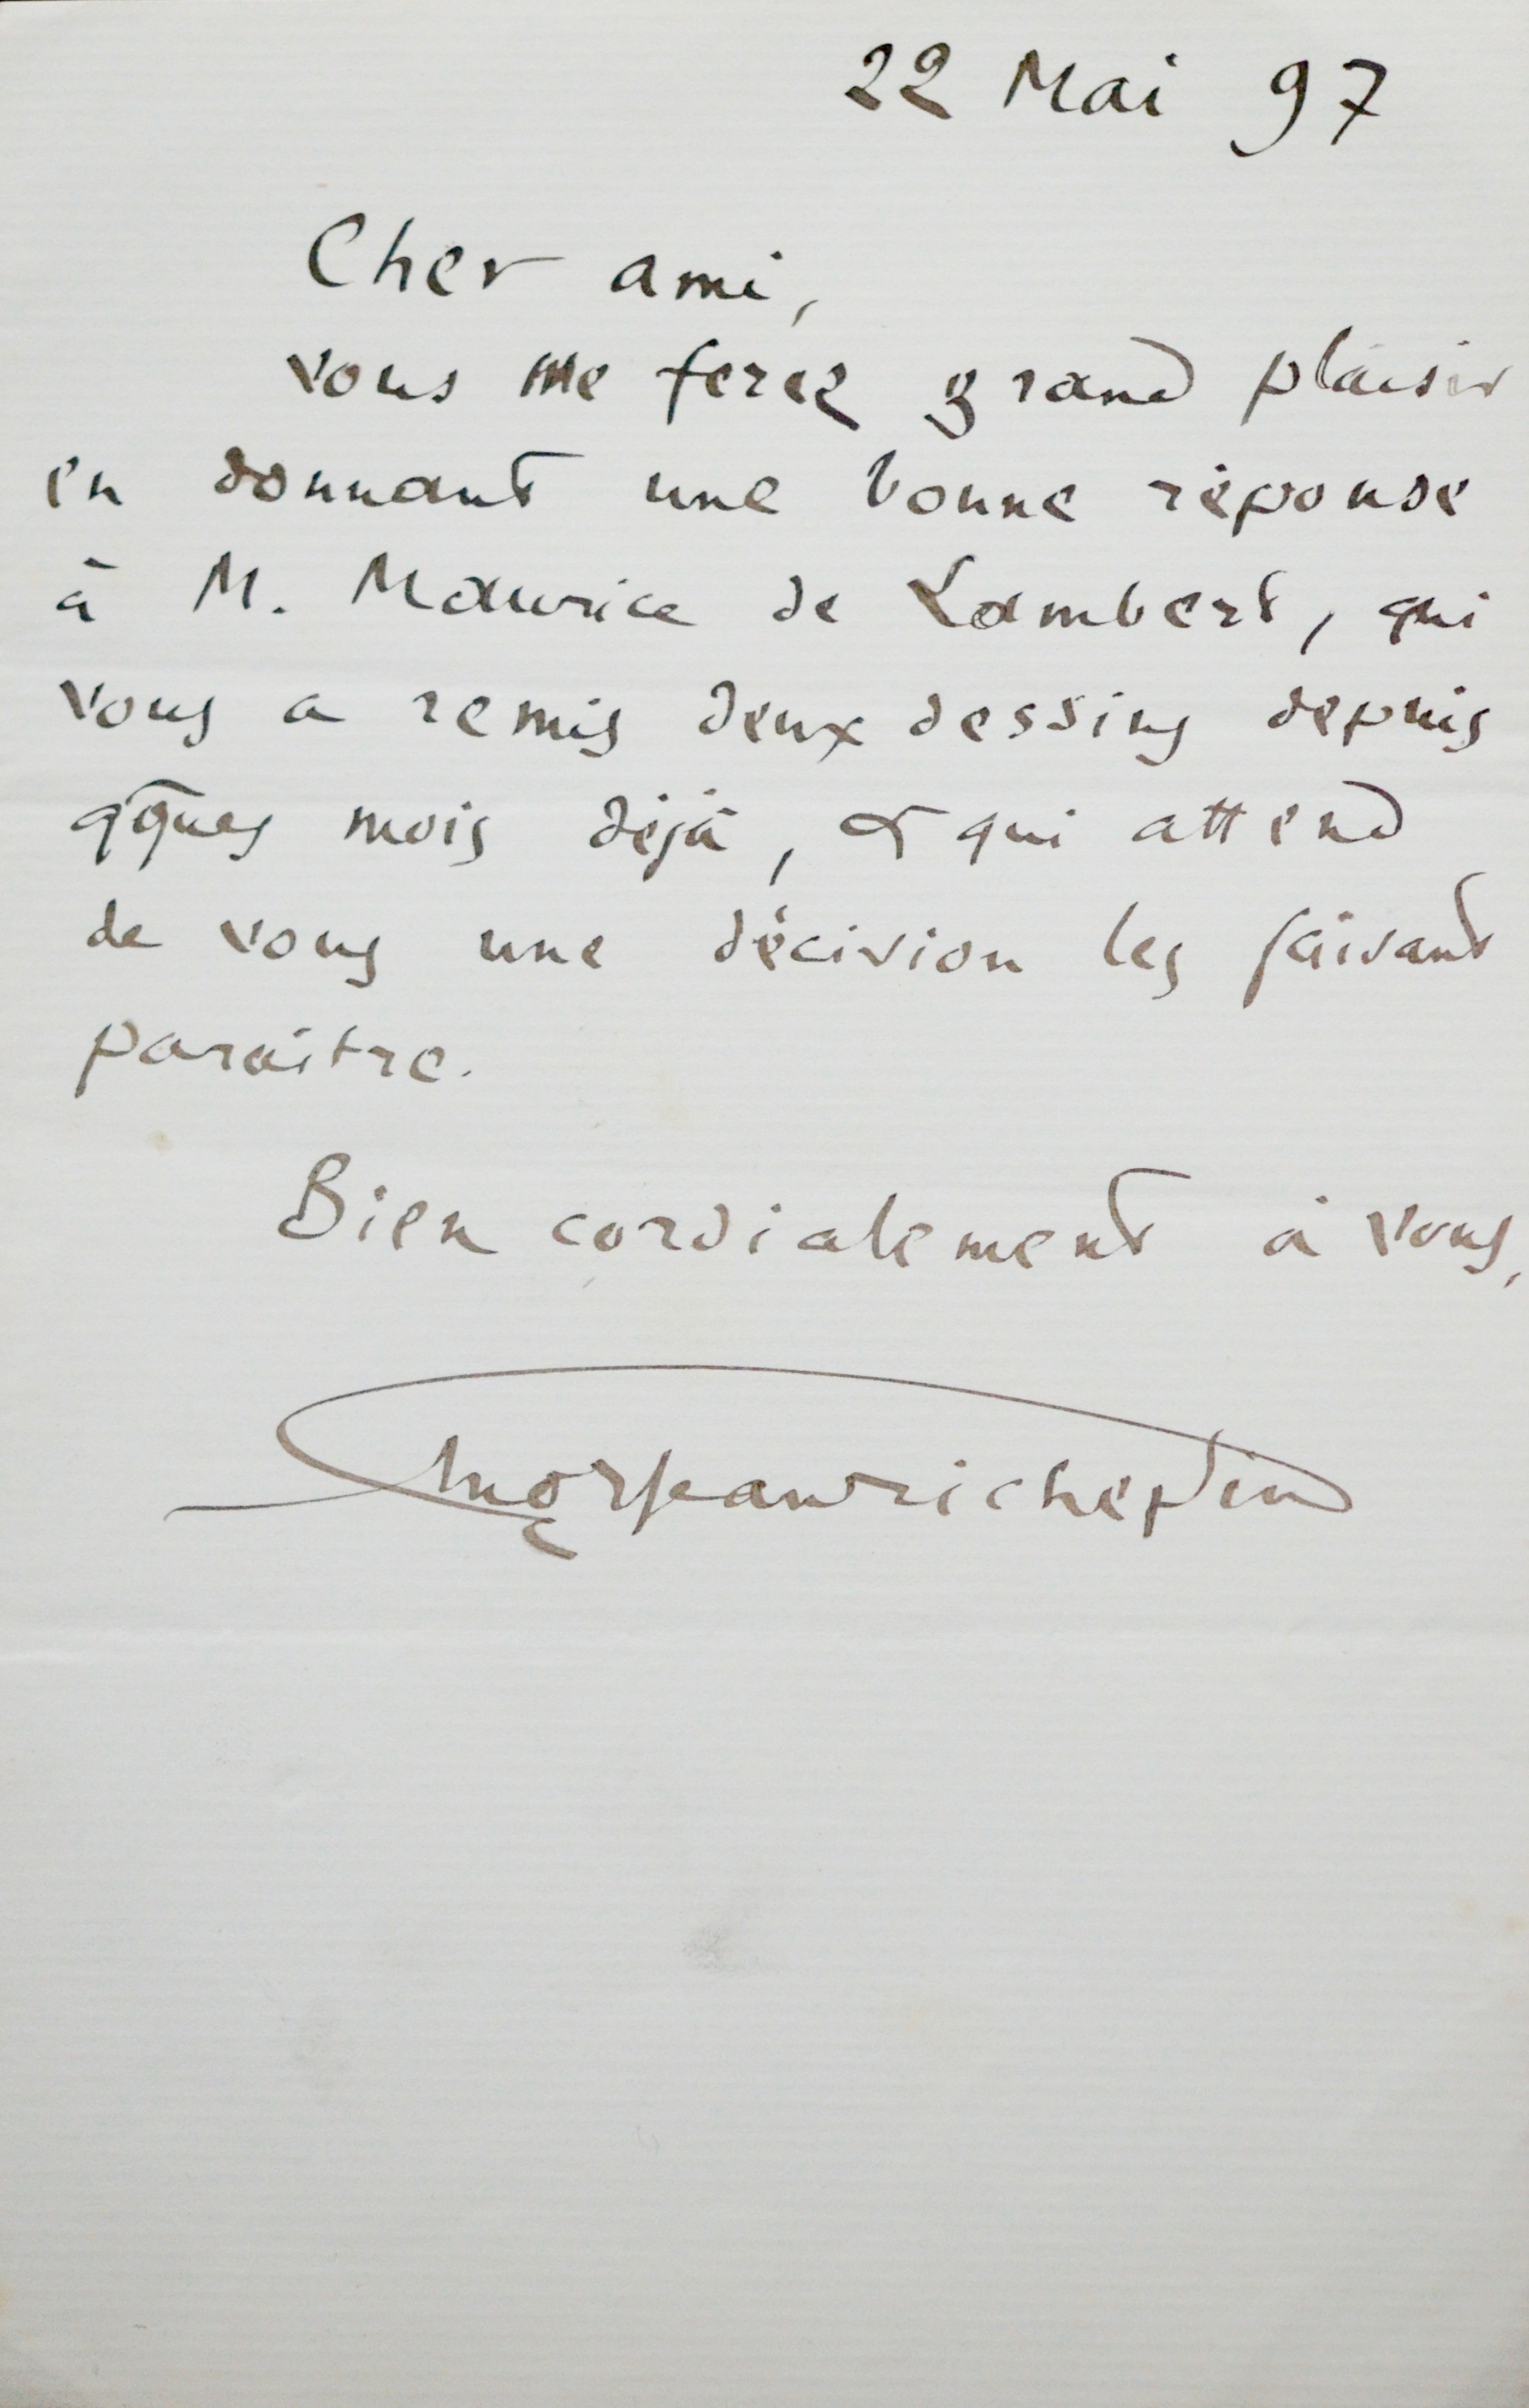 22 Mai 97
Cher ami,
vous me ferez grand plaisir
en donnant une bonne réponse
à M. Maurice de Lambert, qui
vous a remis deux dessins depuis
qques mois déjà, & qui attend
de vous une décision les faisant
paraître.
Bien cordialement à vous,
Jean Richepin